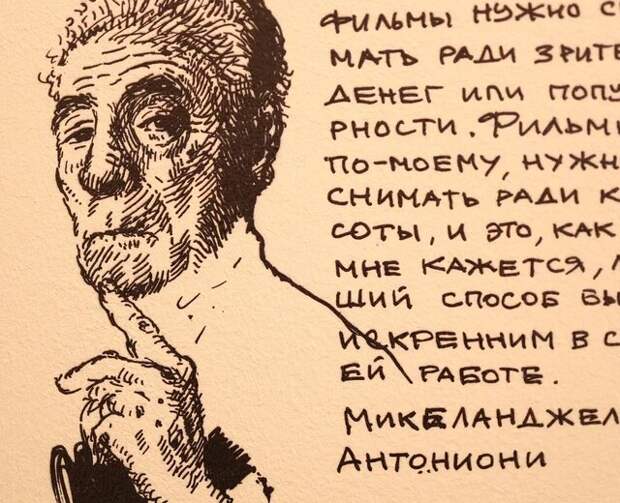 ФИЛЬМЫ НУЖНО С
МАТЬ РАДИ ЗРИТЕ
ДЕНЕГ ИЛИ ПОПУ
РНОСТИ. ФИЛЬМ
ПО-МОЕМУ, НУЖН
СНИМАТЬ РАДИ К
СОТЫ, И ЭТО, КАК
МНЕ КАЖЕТСЯ,
ШИЙ СПОСОБ БЫ
ИСКРЕННИМ В С
ЕЙ РАБОТЕ.
МИКЕЛАНДЖЕЛ
АНТОНИОНИ